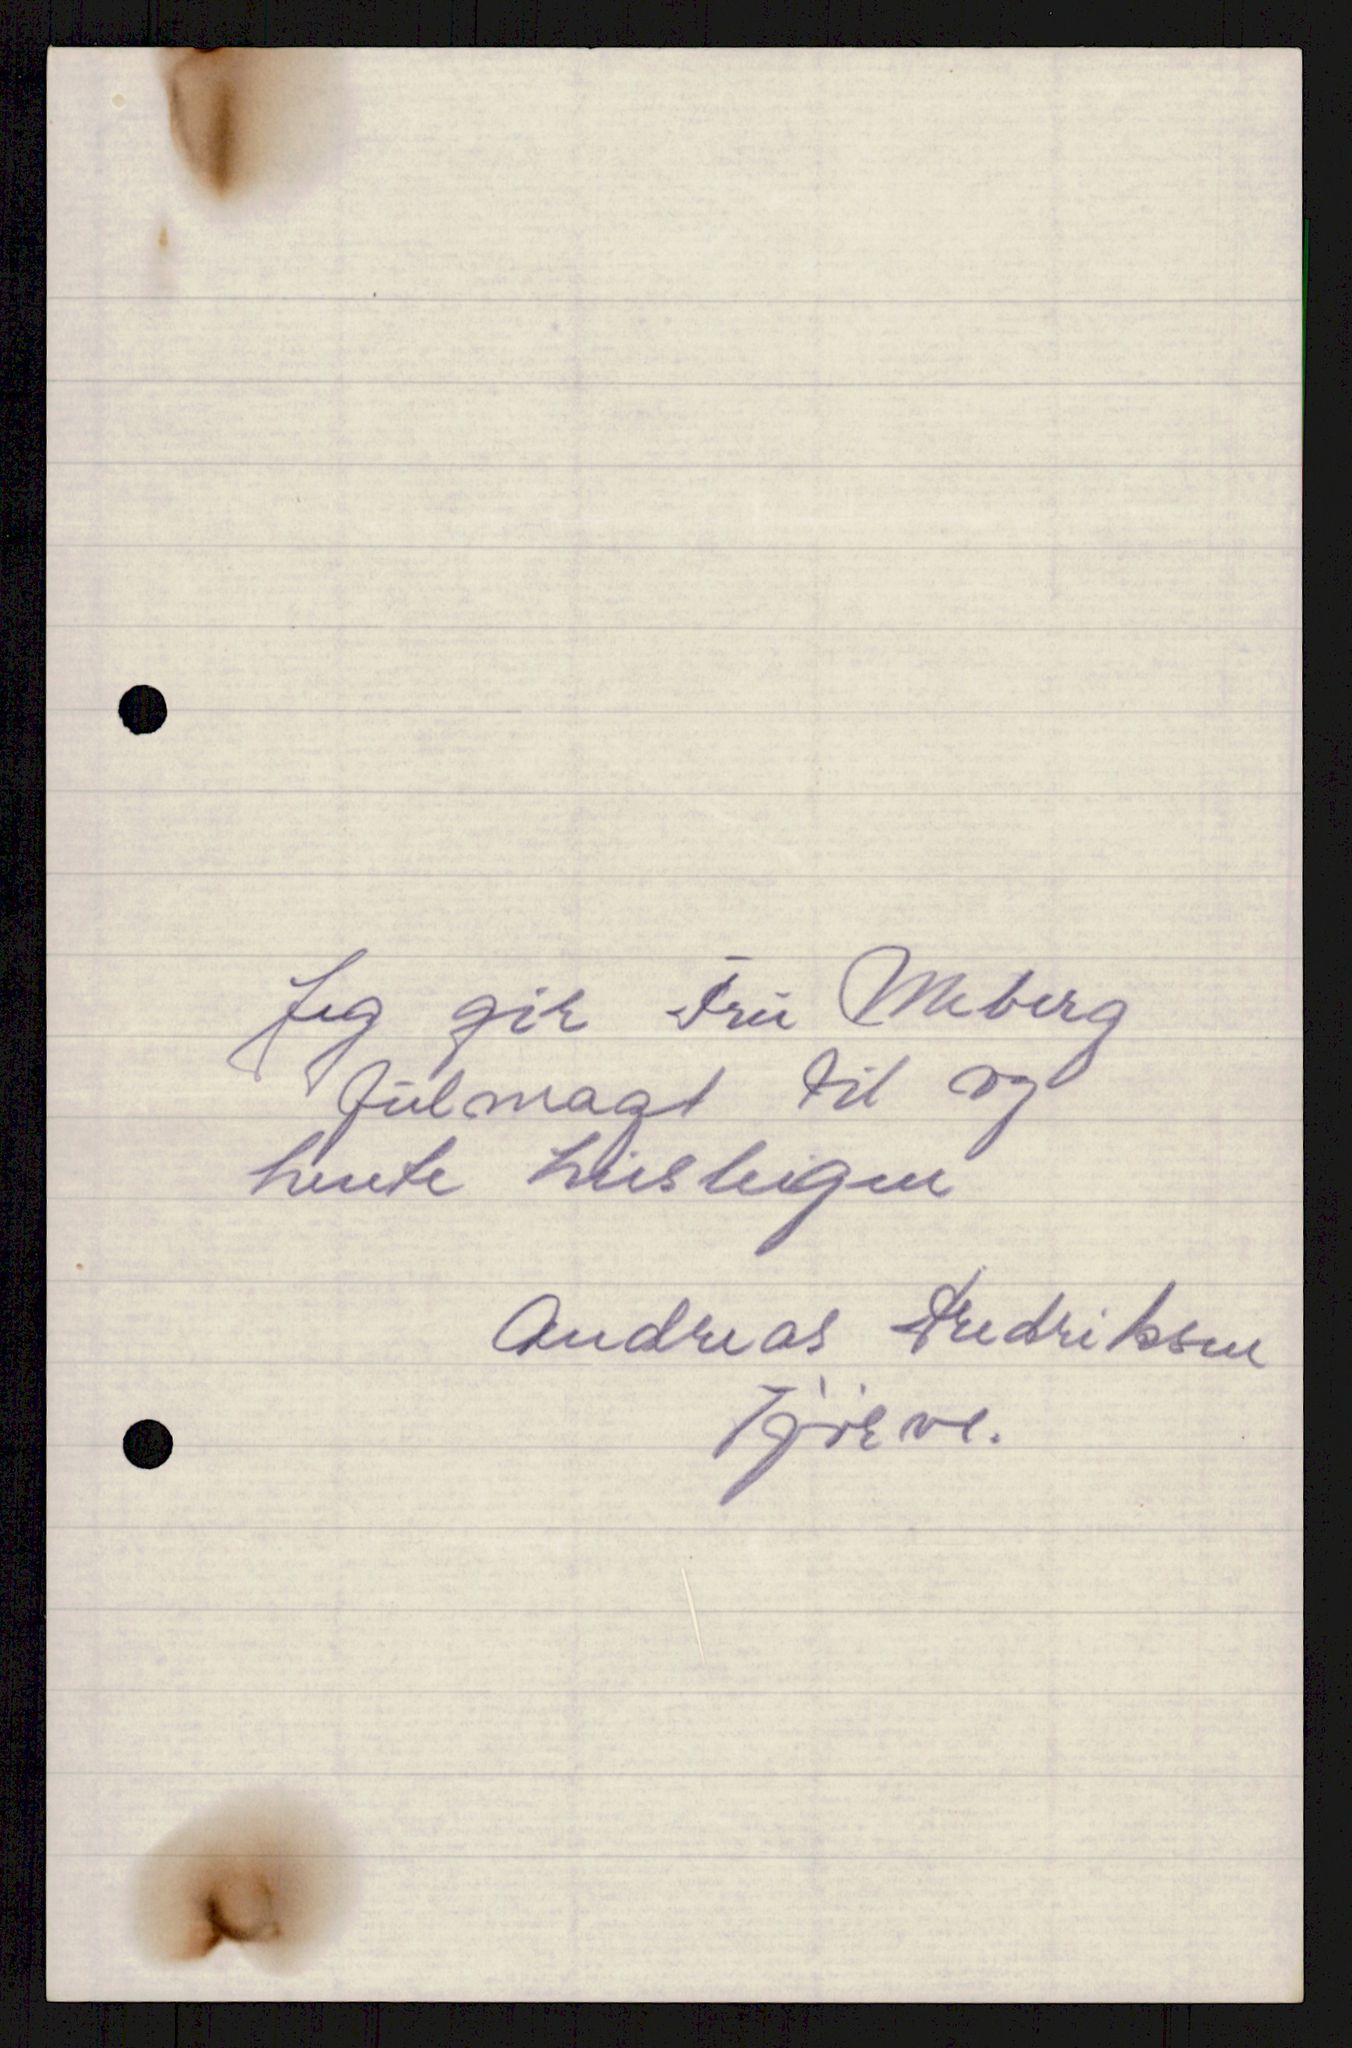 Jeg gir Fru Meberg
fulmagt til og
hente husleigen
Andreas Fredriksen